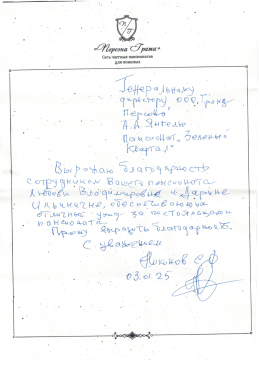 «Персона Грата»
Сеть частных пансионатов
для пожилых
Генеральному
директору ООО „Гранд
Персона"
А.А. Янгелю
пансионат „Зеленый
Квартал"
Выражаю благодарность
сотрудникам Вашего пансионата
Любови Владимировне и Дарине
Ильиничне, обеспечивающих
отличный уход за постояльцами
пансионата.
Прошу выразить благодарность.
С уважением
Никонов С.Ф
03.01.25